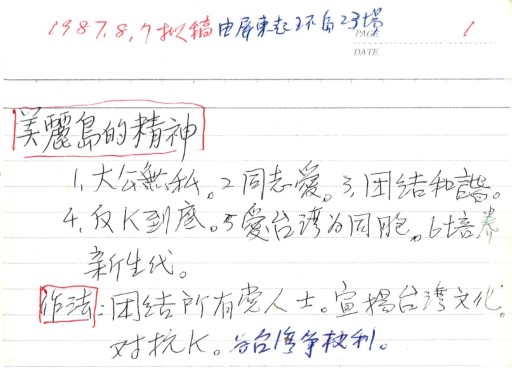 1987.8.7拟稿由屏東起环岛23場
PAGE 1
DATE
美麗島的精神
1,大公無私。2同志愛。3,团结和諧。
4,反K到底。5愛台湾为同胞。6培养
新生代。
作法:团结所有党人士。宣揚台湾文化。
对抗K。为台湾争权利。